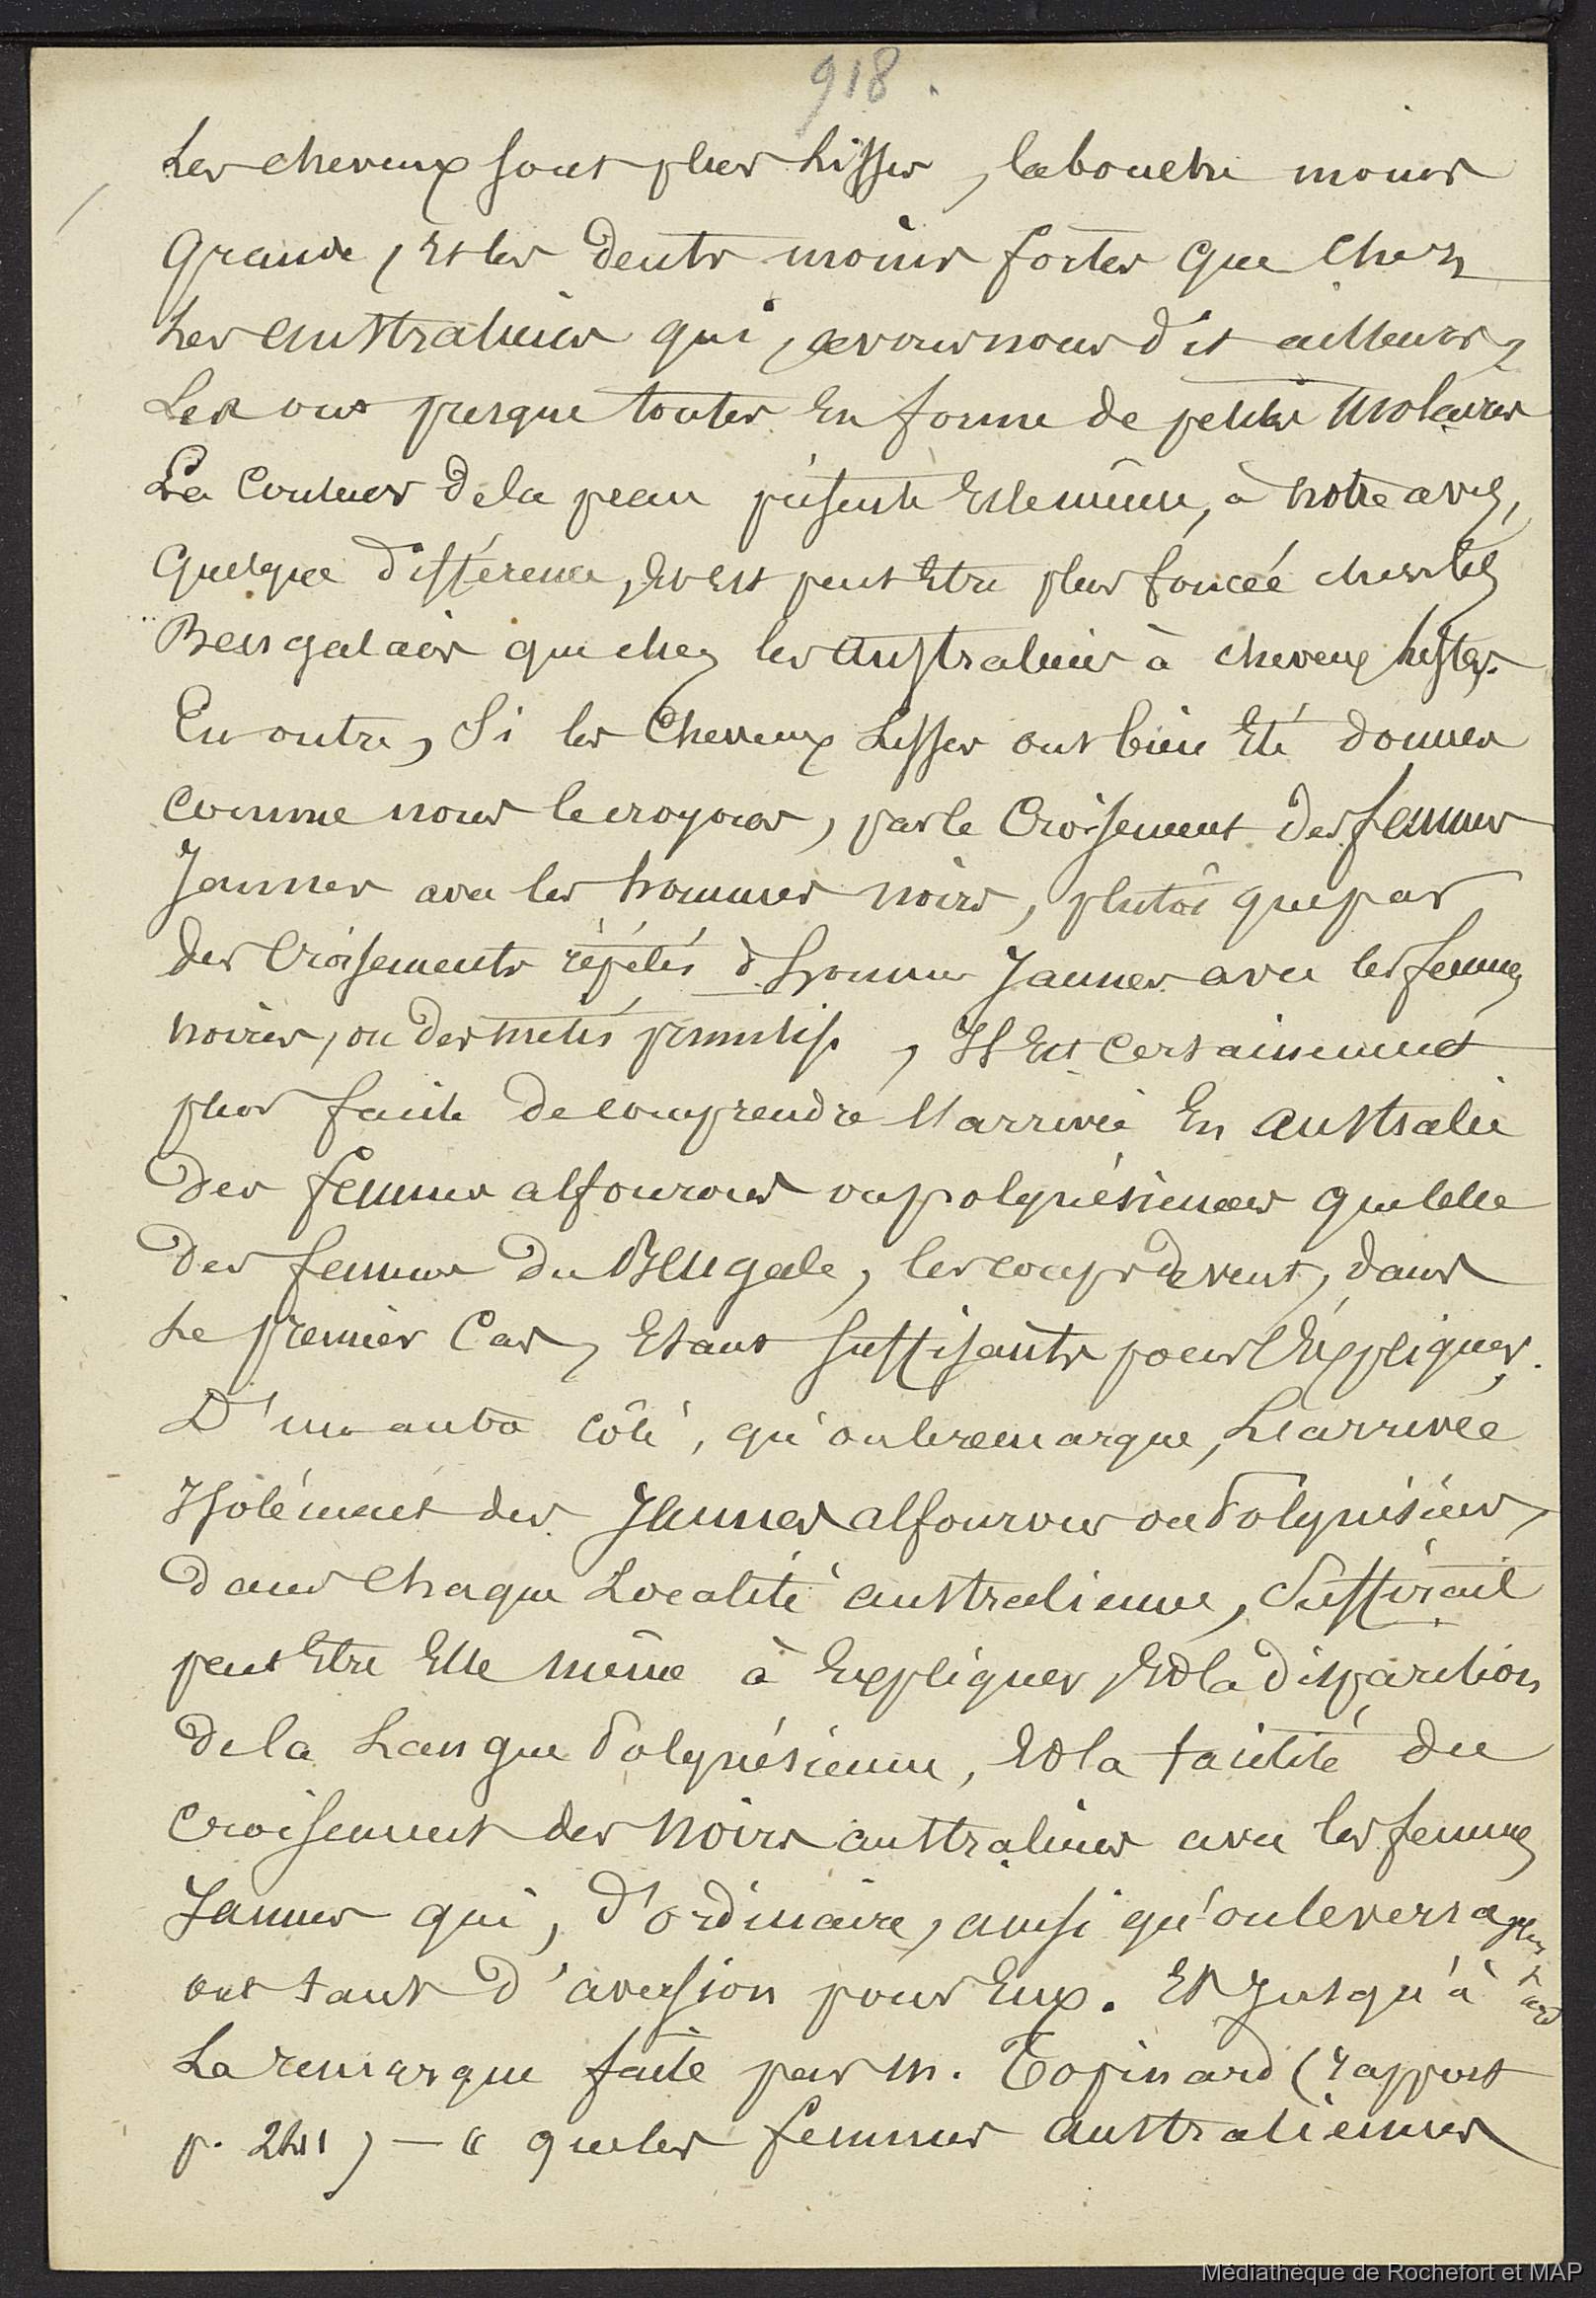 918.
Les cheveux sont plus lisses, la bouche moins
grande, et les dents moins fortes que chez
les australiens qui, avons nous dit ailleurs,
les ont presque toutes en forme de petites molaires
La couleur de la peau présente elle même, à notre avis,
quelque différence, et est peut être plus foncée chez les
Bengalais que chez les australiens à cheveux lisses.
En outre, si les cheveux lisses ont bien été donnés
comme nous le croyons, par le croisement des femmes
jaunes avec les hommes noirs, plutôt que par
des croisements répétés d'hommes jaunes avec les femmes
noires, ou des métis primitifs, il est certainement
plus facile de comprendre l'arrivée en australie
des femmes alfourous ou polynésiennes que celle
des femmes du Bengale, les coups de vent, dans
le premier cas, étant suffisants pour l'expliquer.
D'un autre côté, qu'on le remarque, l'arrivée
isolément des jaunes alfourous ou Polynésiens,
dans chaque localité australienne, suffirait
peut être elle même à expliquer, et la disparition
de la langue Polynésienne, et la facilité du
croisement des noirs australiens avec les femmes
jaunes qui, d'ordinaire, ainsi qu'on le verra plus tard
ont tant d'aversion pour eux. Et jusqu'à
la remarque faite par M. Topinard (rapport
p. 241) — « que les femmes australiennes
Médiathèque de Rochefort et MAP